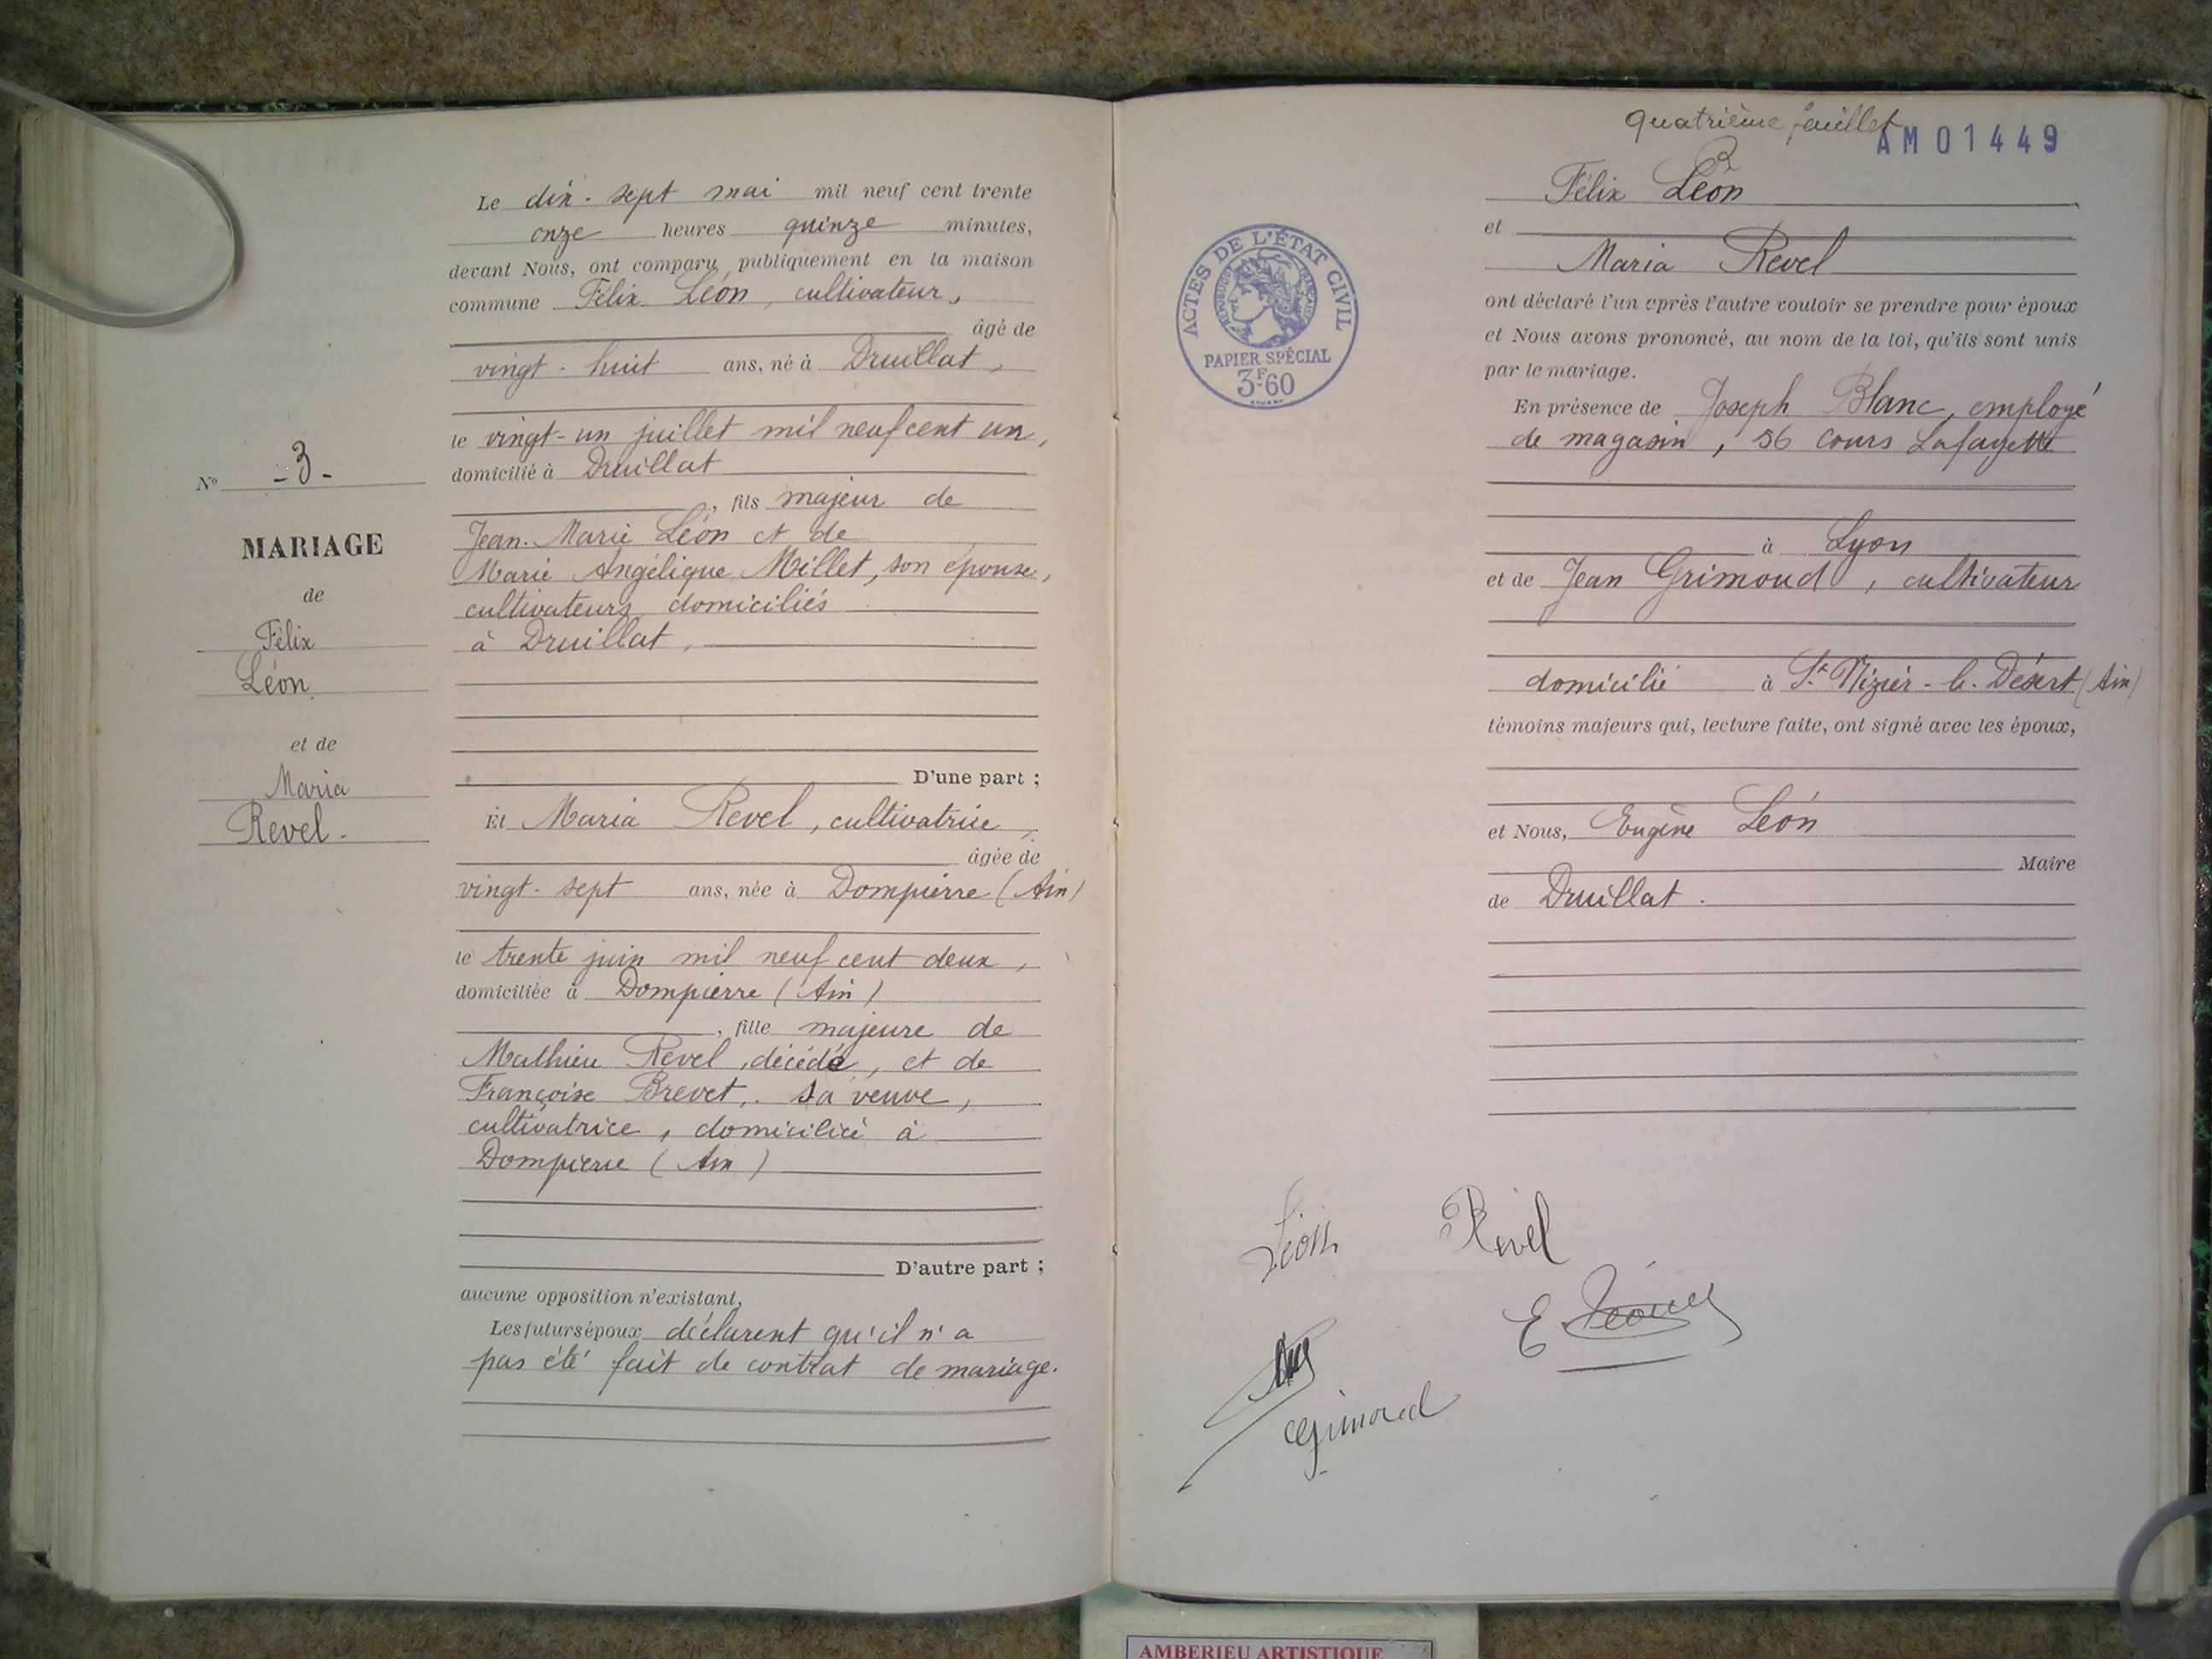 N° - 3 -
MARIAGE
de
Félix
Léon
et de
Maria
Revel -
Le dix-sept mai mil neuf cent trente
onze heures quinze minutes,
devant Nous, ont comparu publiquement en la maison
commune Félix Léon, cultivateur,
âgé de
vingt-huit ans, né à Druillat,
le vingt-un juillet mil neuf cent un,
domicilié à Druillat
, fils majeur de
Jean-Marie Léon et de
Marie Angélique Millet, son épouse,
cultivateurs domiciliés
à Druillat,
D'une part ;
Et Maria Revel, cultivatrice,
âgée de
vingt-sept ans, née à Dompierre (Ain)
le trente juin mil neuf cent deux,
domiciliée à Dompierre (Ain)
, fille majeure de
Mathieu Revel, décédé, et de
Françoise Brevet, sa veuve,
cultivatrice, domiciliée à
Dompierre (Ain)
D'autre part ;
aucune opposition n'existant,
Les futurs époux déclarent qu'il n'a
pas été fait de contrat de mariage.
quatrième feuillet
AM01449
ACTES DE L'ÉTAT CIVIL
RÉPUBLIQUE FRANÇAISE
PAPIER SPÉCIAL
3F60
Félix Léon
et
Maria Revel
ont déclaré l'un après l'autre vouloir se prendre pour époux
et Nous avons prononcé, au nom de la loi, qu'ils sont unis
par le mariage.
En présence de Joseph Blanc, employé
de magasin, 56 cours Lafayette
à Lyon
et de Jean Grimoud, cultivateur
domicilié à St Nizier-le-Désert (Ain)
témoins majeurs qui, lecture faite, ont signé avec les époux,
et Nous, Eugène Léon
Maire
de Druillat.
Léon Revel
E Léon
Grimoud
AMBERIEU ARTISTIQUE